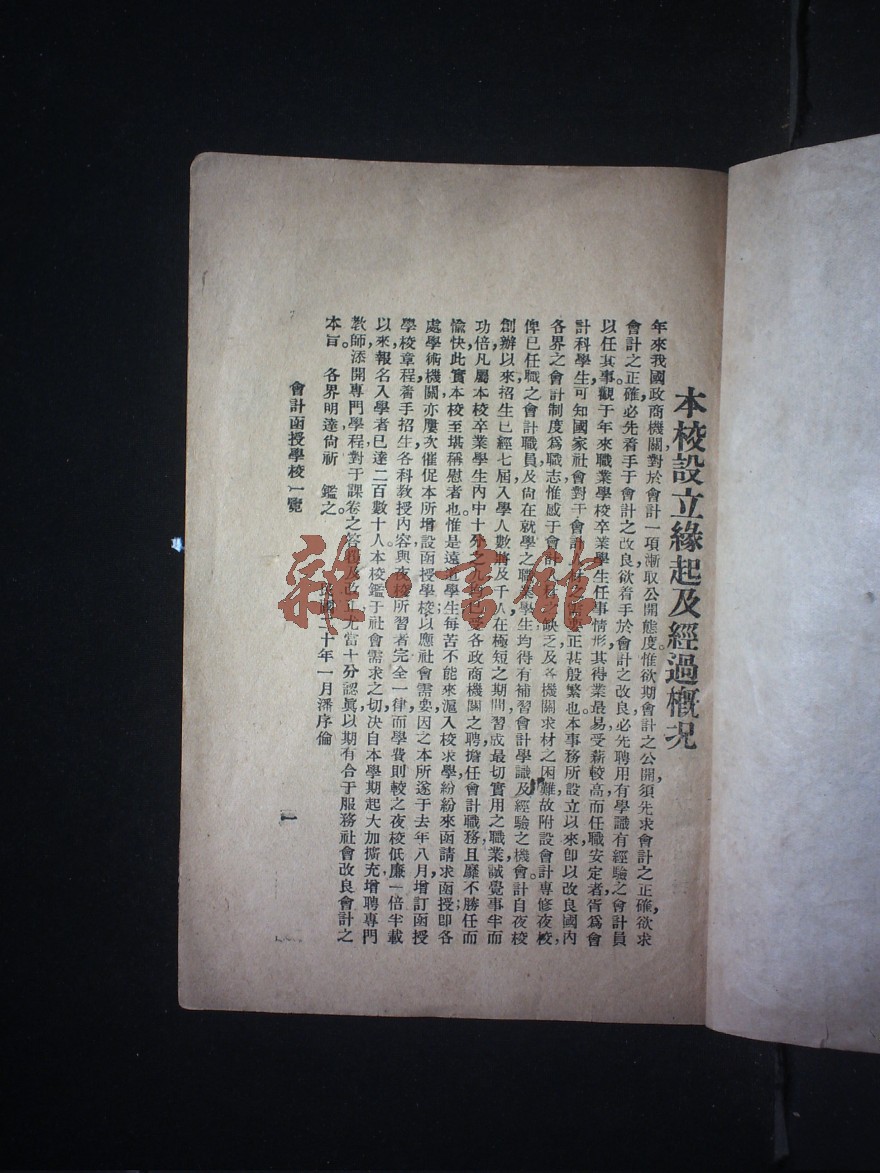 本校設立緣起及經過概況
年來我國政商機關,對於會計一項,漸取公開態度。惟欲期會計之公開,須先求會計之正確,欲求
會計之正確,必先着手于會計之改良,欲着手於會計之改良,必先聘用有學識有經驗之會計員
以任其事。觀于年來職業學校卒業學生任事情形,其得業最易,受薪較高,而任職安定者,胥為會
計科學生,可知國家社會對于會計 之 正甚殷繁也。本事務所設立以來,即以改良國內
各界之會計制度為職志,惟感于會計 之缺乏,及各機關求材之困難,故附設會計專修夜校,
俾已任職之會計職員,及尚在就學之職業學生,均得有補習會計學識及經驗之機會。計自夜校
創辦以來,招生已經七屆,入學人數將及千人,在極短之期間,習成最切實用之職業,誠覺事半而
功倍,凡屬本校卒業學生內中十分之九 受各政商機關之聘,擔任會計職務,且靡不勝任而
愉快,此實本校至堪稱慰者也。惟是遠近學生,每苦不能來滬入校求學,紛紛來函請求函授;即各
處學術機關,亦屢次催促本所增設函授學校,以應社會需要,因之本所遂于去年八月,增訂函授
學校章程,着手招生,各科教授內容,與夜校所習者完全一律,而學費則較之夜校低廉一倍,半載
以來,報名入學者,已達二百數十人。本校鑑于社會需求之切,決自本學期起大加擴充,增聘專門
教師,添開專門學程,對于課卷之答 及改 尤當十分認眞,以期有合于服務社會改良會計之
本旨。各界明達,尙祈 鑑之。
民國二十年一月潘序倫
會計函授學校一覽
一
雜·書館